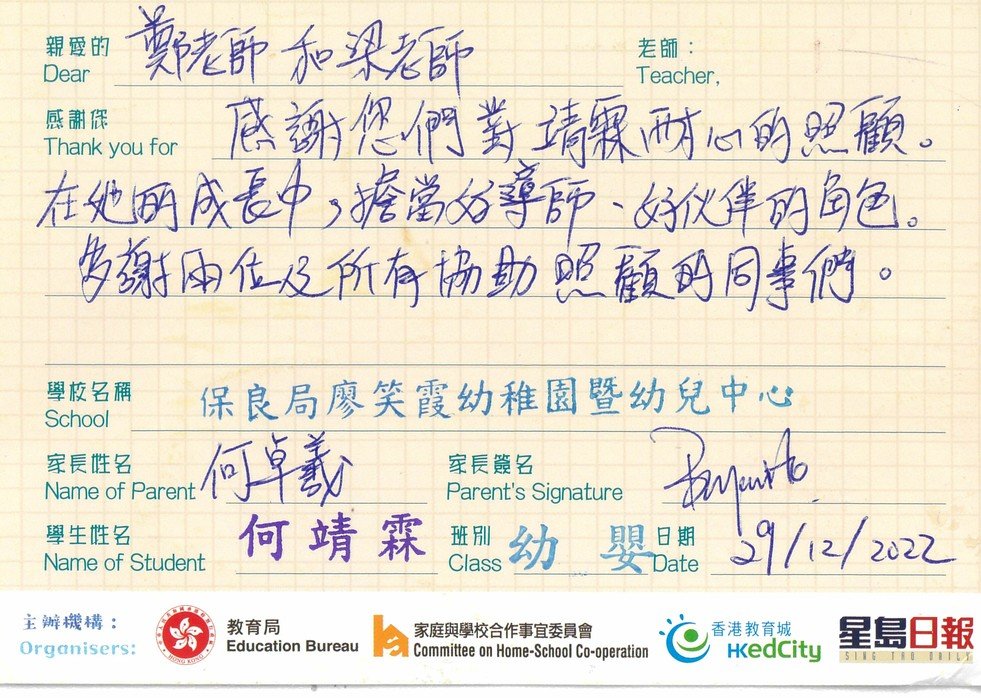 親愛的 鄭老師 和梁老師 老師：
Dear Teacher,
感謝您 感謝您們對靖霖耐心的照顧。
Thank you for
在她的成長中，擔當好導師、好伙伴的角色。
多謝兩位及所有協助照顧的同事們。
學校名稱 保良局廖笑霞幼稚園暨幼兒中心
School
家長姓名 何卓羲 家長簽名
Name of Parent Parent's Signature
學生姓名 何靖霖 班別 幼嬰 日期 29/12/2022
Name of Student Class Date
主辦機構： 教育局 家庭與學校合作事宜委員會 香港教育城 星島日報
Organisers: Education Bureau Committee on Home-School Co-operation HKedCity SING TAO DAILY
HONG KONG